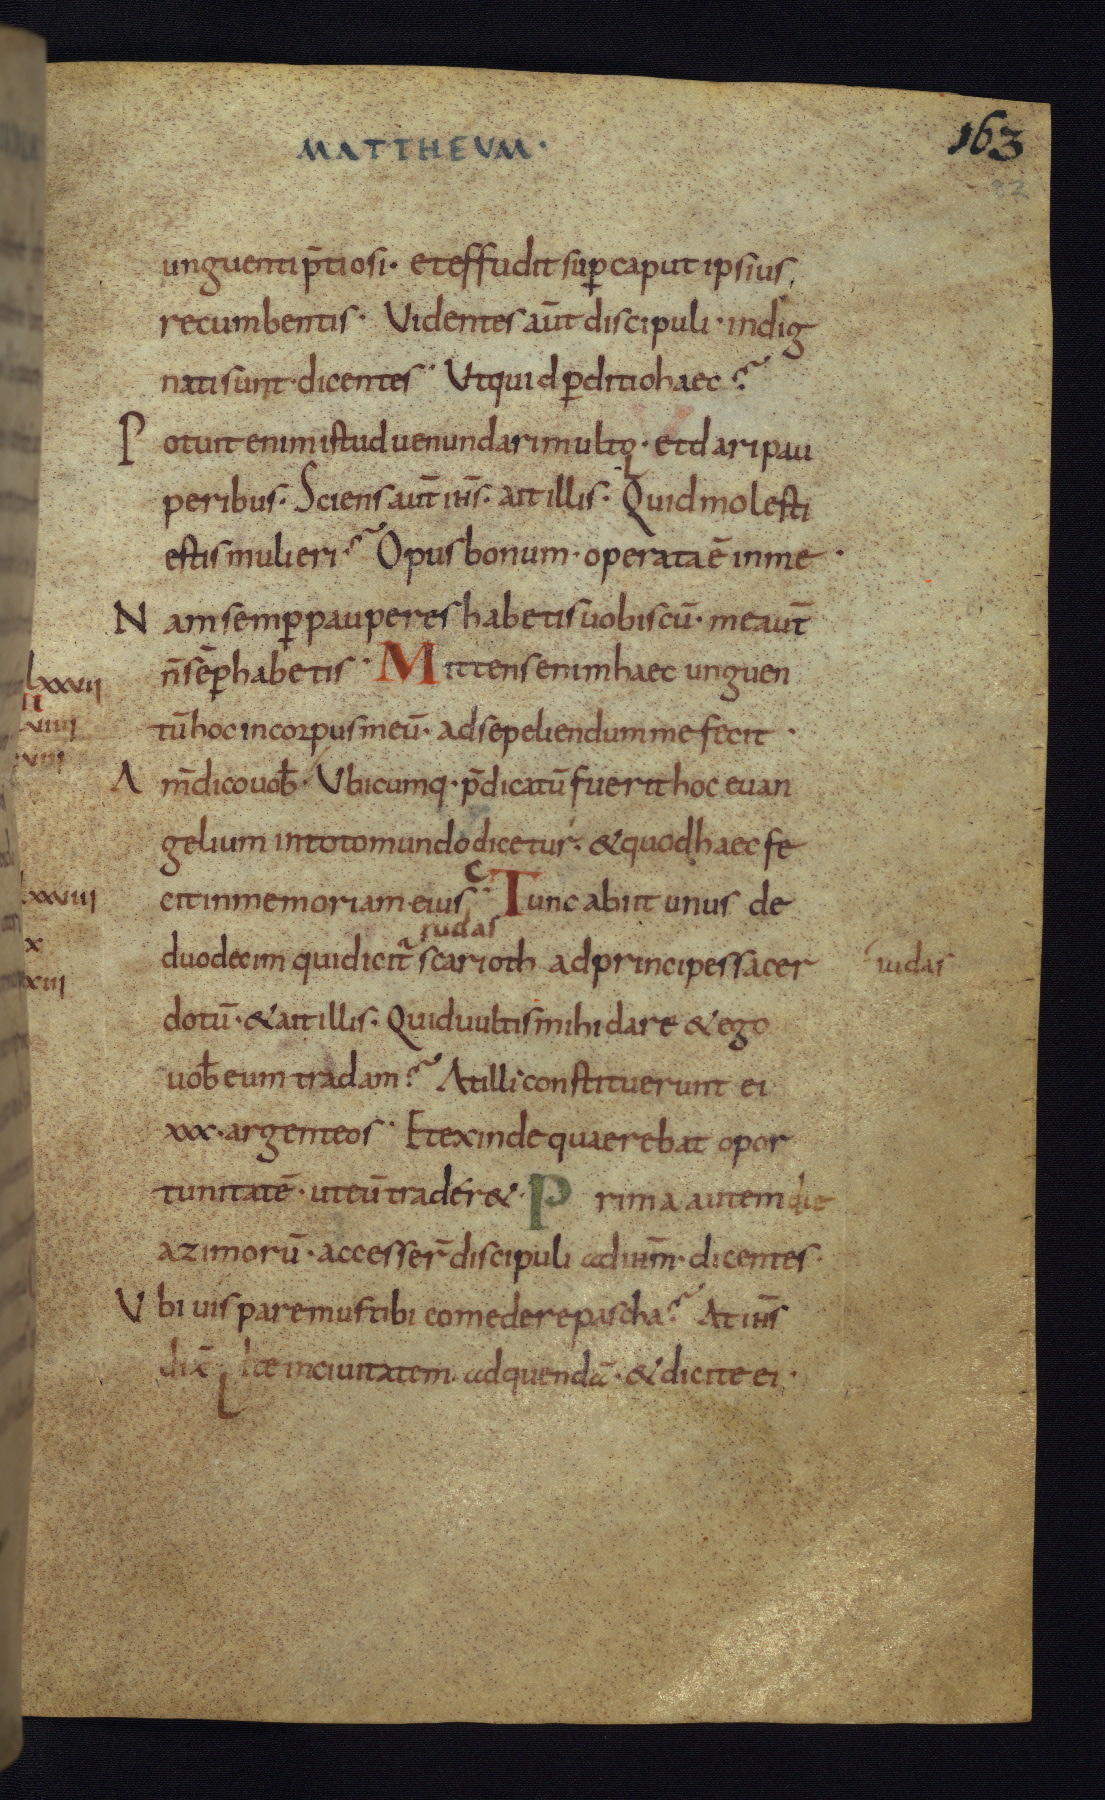 MATTHEUM·
163
82
unguenti p̄tiosi· et effudit sup̱ caput ipsius,
recumbentis· Videntes aūt discipuli· indig
nati sunt· dicentes·· Ut quid p̱ditio haec?
Potuit enim istud uenundari multo· et dari pau
peribus· Sciens aūt ih̄s· ait illis· Quid molesti
estis mulieri? Opus bonum· operata ē in me·
Nam semp̱ pauperes habetis uobiscū· me aūt
n̄ sēp̱ habetis·· Mittens enim haec unguen
tū hoc in corpus meū· ad sepeliendum me fecit·
Am̄ dico uob̄· Vbicumq· p̄dicatū fuerit hoc euan
gelium in toto mundo dicetur· & quod haec fe
cit in memoriam eius·· Tunc abiit unus de
iudas
duodecim qui dicit̄ scarioth ad principes sacer
iudas
dotū· & ait illis· Quid uultis mihi dare & ego
uob̄ eum tradam? At illi constituerunt ei
xxx· argenteos·· Et exinde quaerebat opor
tunitatē· ut eū trader&· Prima autem die
azimorū· accesser̄ discipuli ad ih̄m· dicentes·
Vbi uis paremus tibi comedere pascha? At ih̄s
dix̄ Ite in ciuitatem· ad quendā· & dicite ei·